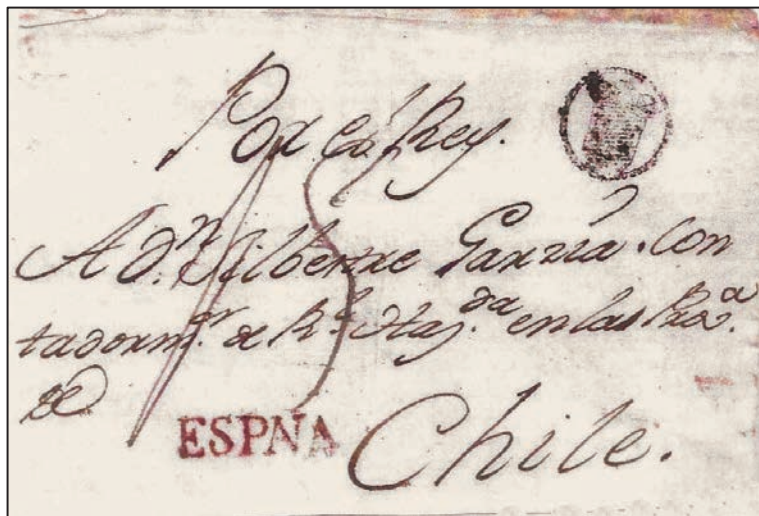 Por el Rey.
15
A Dⁿ. Silbestre Garzia. Con
tador mʳ. de Rˡ. Hazᵈᵃ. en las Proᵃ.
de
ESPNA Chile.